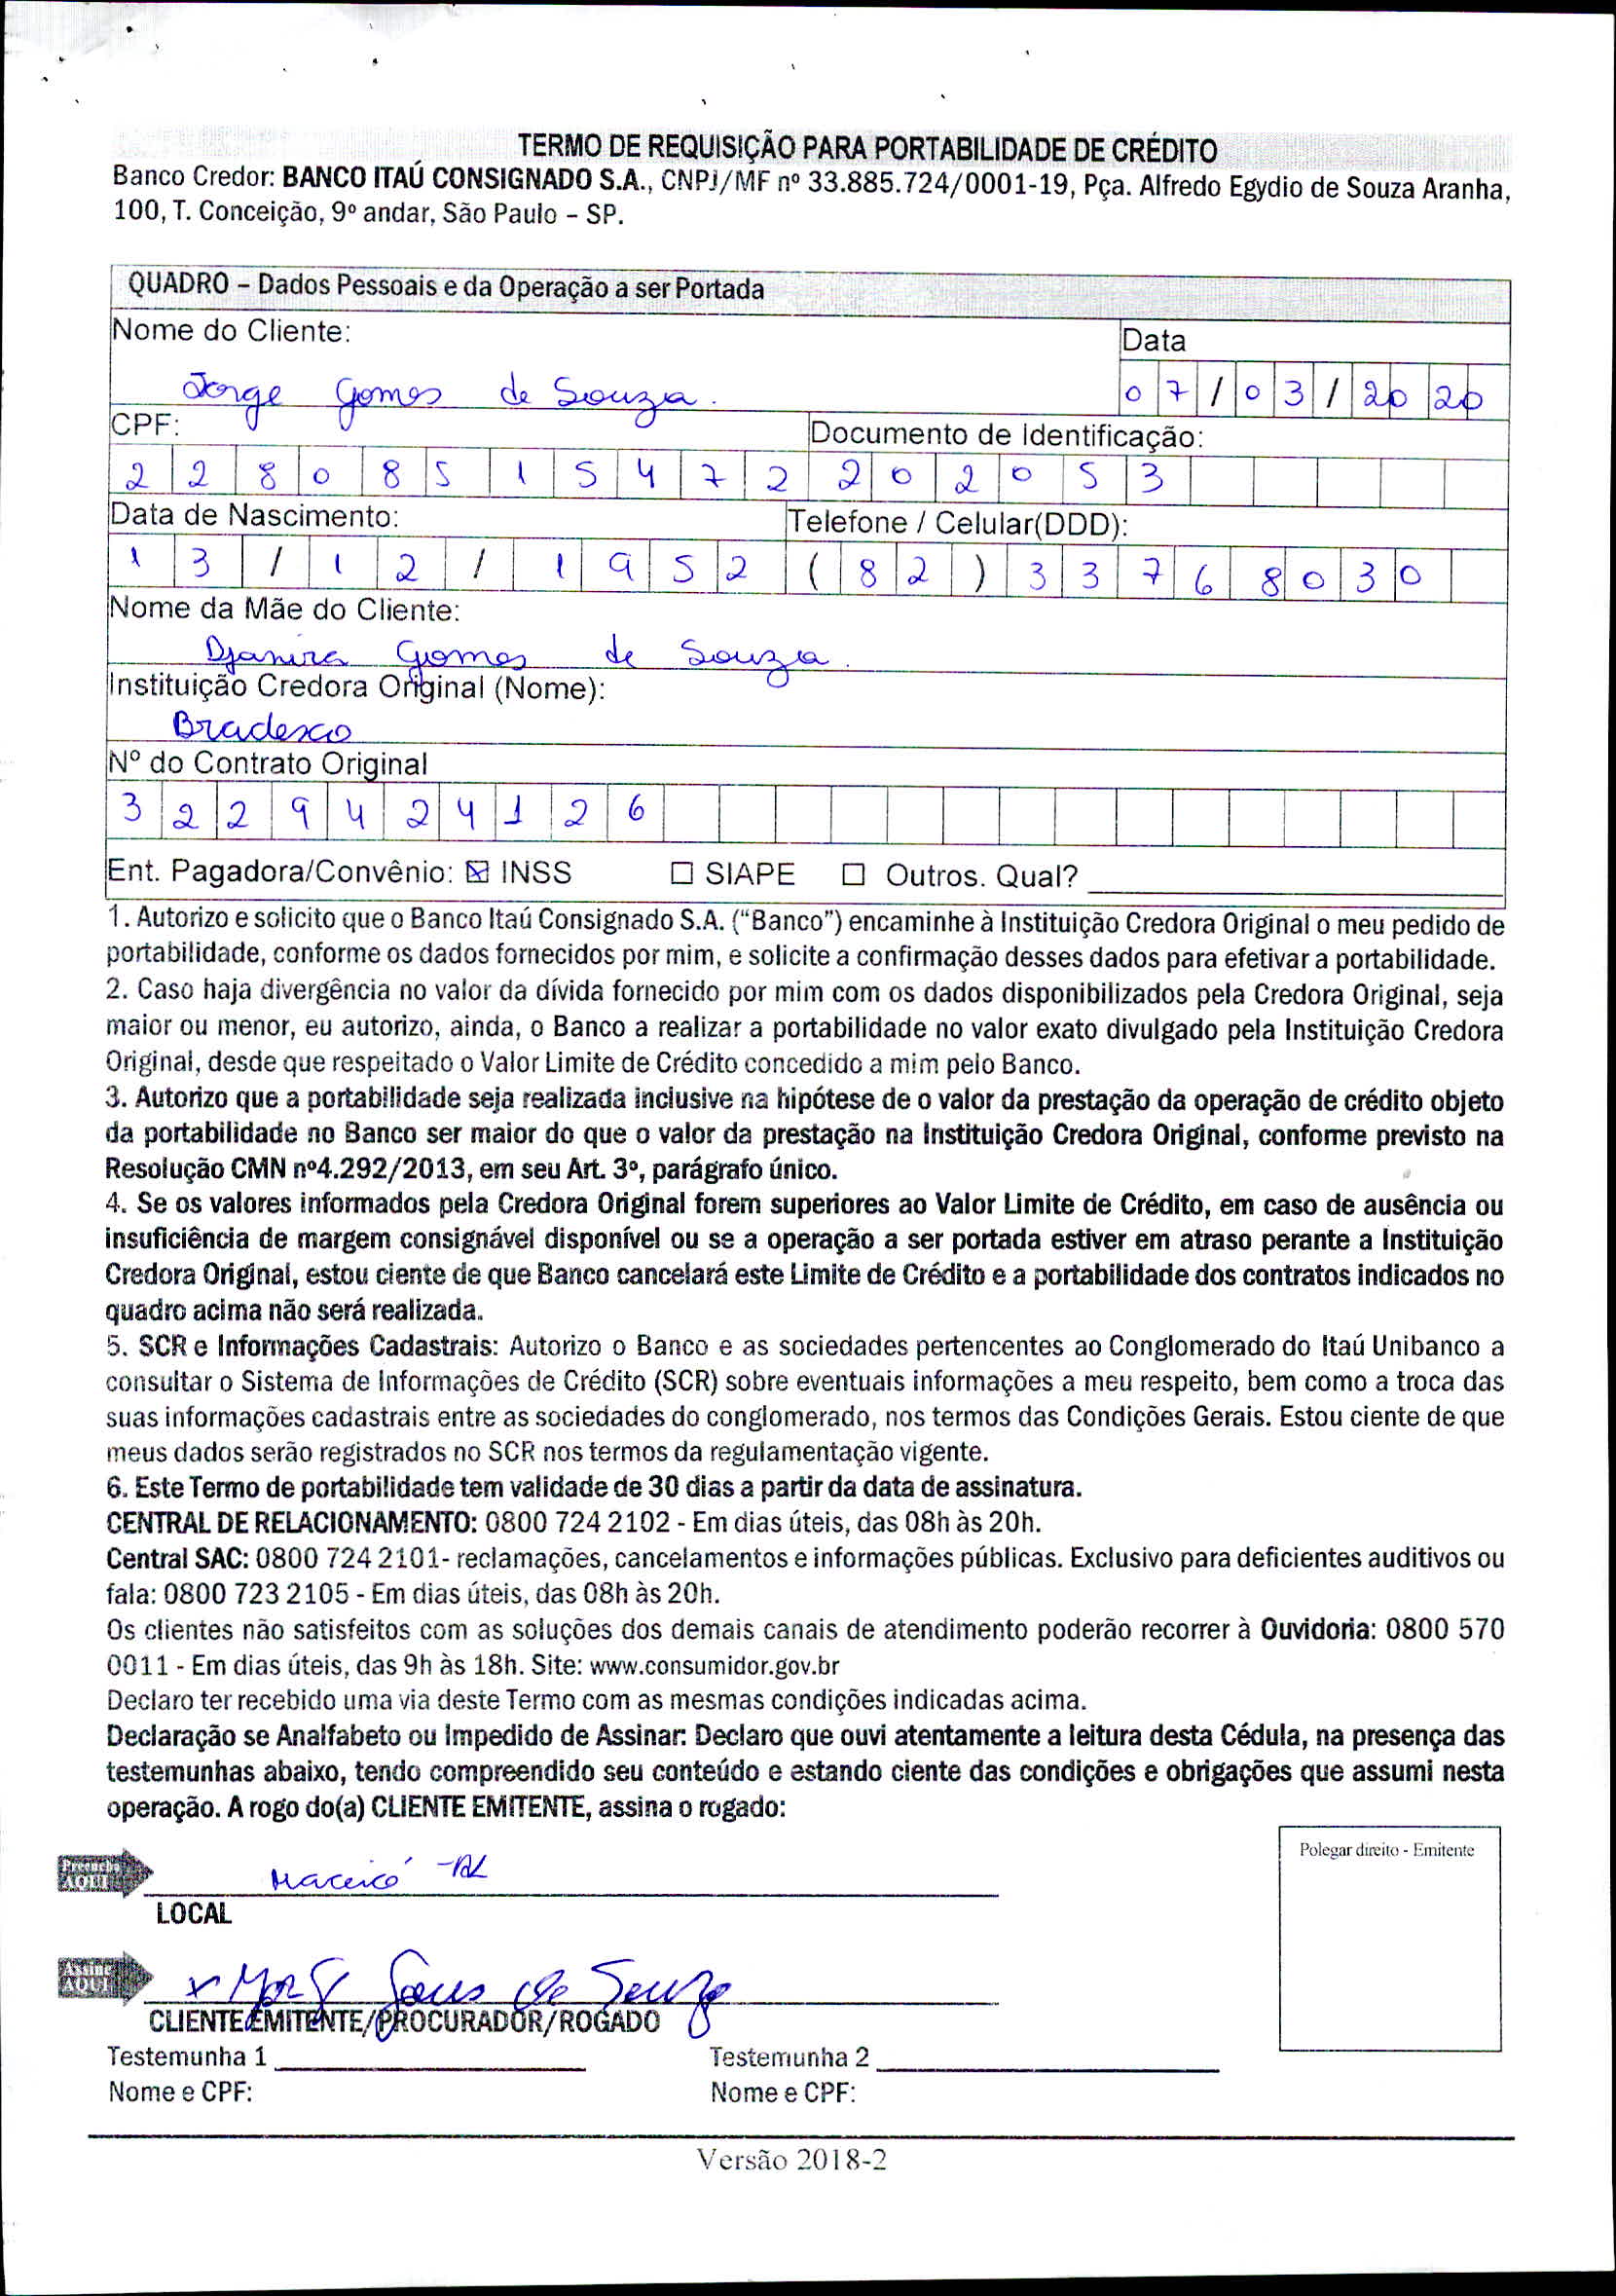 TERMO DE REQUISIÇÃO PARA PORTABILIDADE DE CRÉDITO
Banco Credor: BANCO ITAÚ CONSIGNADO S.A., CNPJ/MF nº 33.885.724/0001-19, Pça. Alfredo Egydio de Souza Aranha,
100, T. Conceição, 9º andar, São Paulo – SP.
QUADRO – Dados Pessoais e da Operação a ser Portada
Nome do Cliente: Data
Jorge Gomes de Souza. 07/03/2020
CPF: Documento de Identificação:
22808515472 202053
Data de Nascimento: Telefone / Celular(DDD):
13/12/1952 (82) 33768030
Nome da Mãe do Cliente:
Djanira Gomes de Souza.
Instituição Credora Original (Nome):
Bradesco
Nº do Contrato Original
3229424126
Ent. Pagadora/Convênio: ☒ INSS ☐ SIAPE ☐ Outros. Qual?
1. Autorizo e solicito que o Banco Itaú Consignado S.A. (“Banco”) encaminhe à Instituição Credora Original o meu pedido de
portabilidade, conforme os dados fornecidos por mim, e solicite a confirmação desses dados para efetivar a portabilidade.
2. Caso haja divergência no valor da dívida fornecido por mim com os dados disponibilizados pela Credora Original, seja
maior ou menor, eu autorizo, ainda, o Banco a realizar a portabilidade no valor exato divulgado pela Instituição Credora
Original, desde que respeitado o Valor Limite de Crédito concedido a mim pelo Banco.
3. Autorizo que a portabilidade seja realizada inclusive na hipótese de o valor da prestação da operação de crédito objeto
da portabilidade no Banco ser maior do que o valor da prestação na Instituição Credora Original, conforme previsto na
Resolução CMN nº4.292/2013, em seu Art. 3º, parágrafo único.
4. Se os valores informados pela Credora Original forem superiores ao Valor Limite de Crédito, em caso de ausência ou
insuficiência de margem consignável disponível ou se a operação a ser portada estiver em atraso perante a Instituição
Credora Original, estou ciente de que Banco cancelará este Limite de Crédito e a portabilidade dos contratos indicados no
quadro acima não será realizada.
5. SCR e Informações Cadastrais: Autorizo o Banco e as sociedades pertencentes ao Conglomerado do Itaú Unibanco a
consultar o Sistema de Informações de Crédito (SCR) sobre eventuais informações a meu respeito, bem como a troca das
suas informações cadastrais entre as sociedades do conglomerado, nos termos das Condições Gerais. Estou ciente de que
meus dados serão registrados no SCR nos termos da regulamentação vigente.
6. Este Termo de portabilidade tem validade de 30 dias a partir da data de assinatura.
CENTRAL DE RELACIONAMENTO: 0800 724 2102 - Em dias úteis, das 08h às 20h.
Central SAC: 0800 724 2101- reclamações, cancelamentos e informações públicas. Exclusivo para deficientes auditivos ou
fala: 0800 723 2105 - Em dias úteis, das 08h às 20h.
Os clientes não satisfeitos com as soluções dos demais canais de atendimento poderão recorrer à Ouvidoria: 0800 570
0011 - Em dias úteis, das 9h às 18h. Site: www.consumidor.gov.br
Declaro ter recebido uma via deste Termo com as mesmas condições indicadas acima.
Declaração se Analfabeto ou Impedido de Assinar: Declaro que ouvi atentamente a leitura desta Cédula, na presença das
testemunhas abaixo, tendo compreendido seu conteúdo e estando ciente das condições e obrigações que assumi nesta
operação. A rogo do(a) CLIENTE EMITENTE, assina o rogado:
Polegar direito - Emitente
Preencha
AQUI Maceió -AL
LOCAL
Assine
AQUI x de Souza
CLIENTE EMITENTE/PROCURADOR/ROGADO
Testemunha 1 Testemunha 2
Nome e CPF: Nome e CPF:
Versão 2018-2